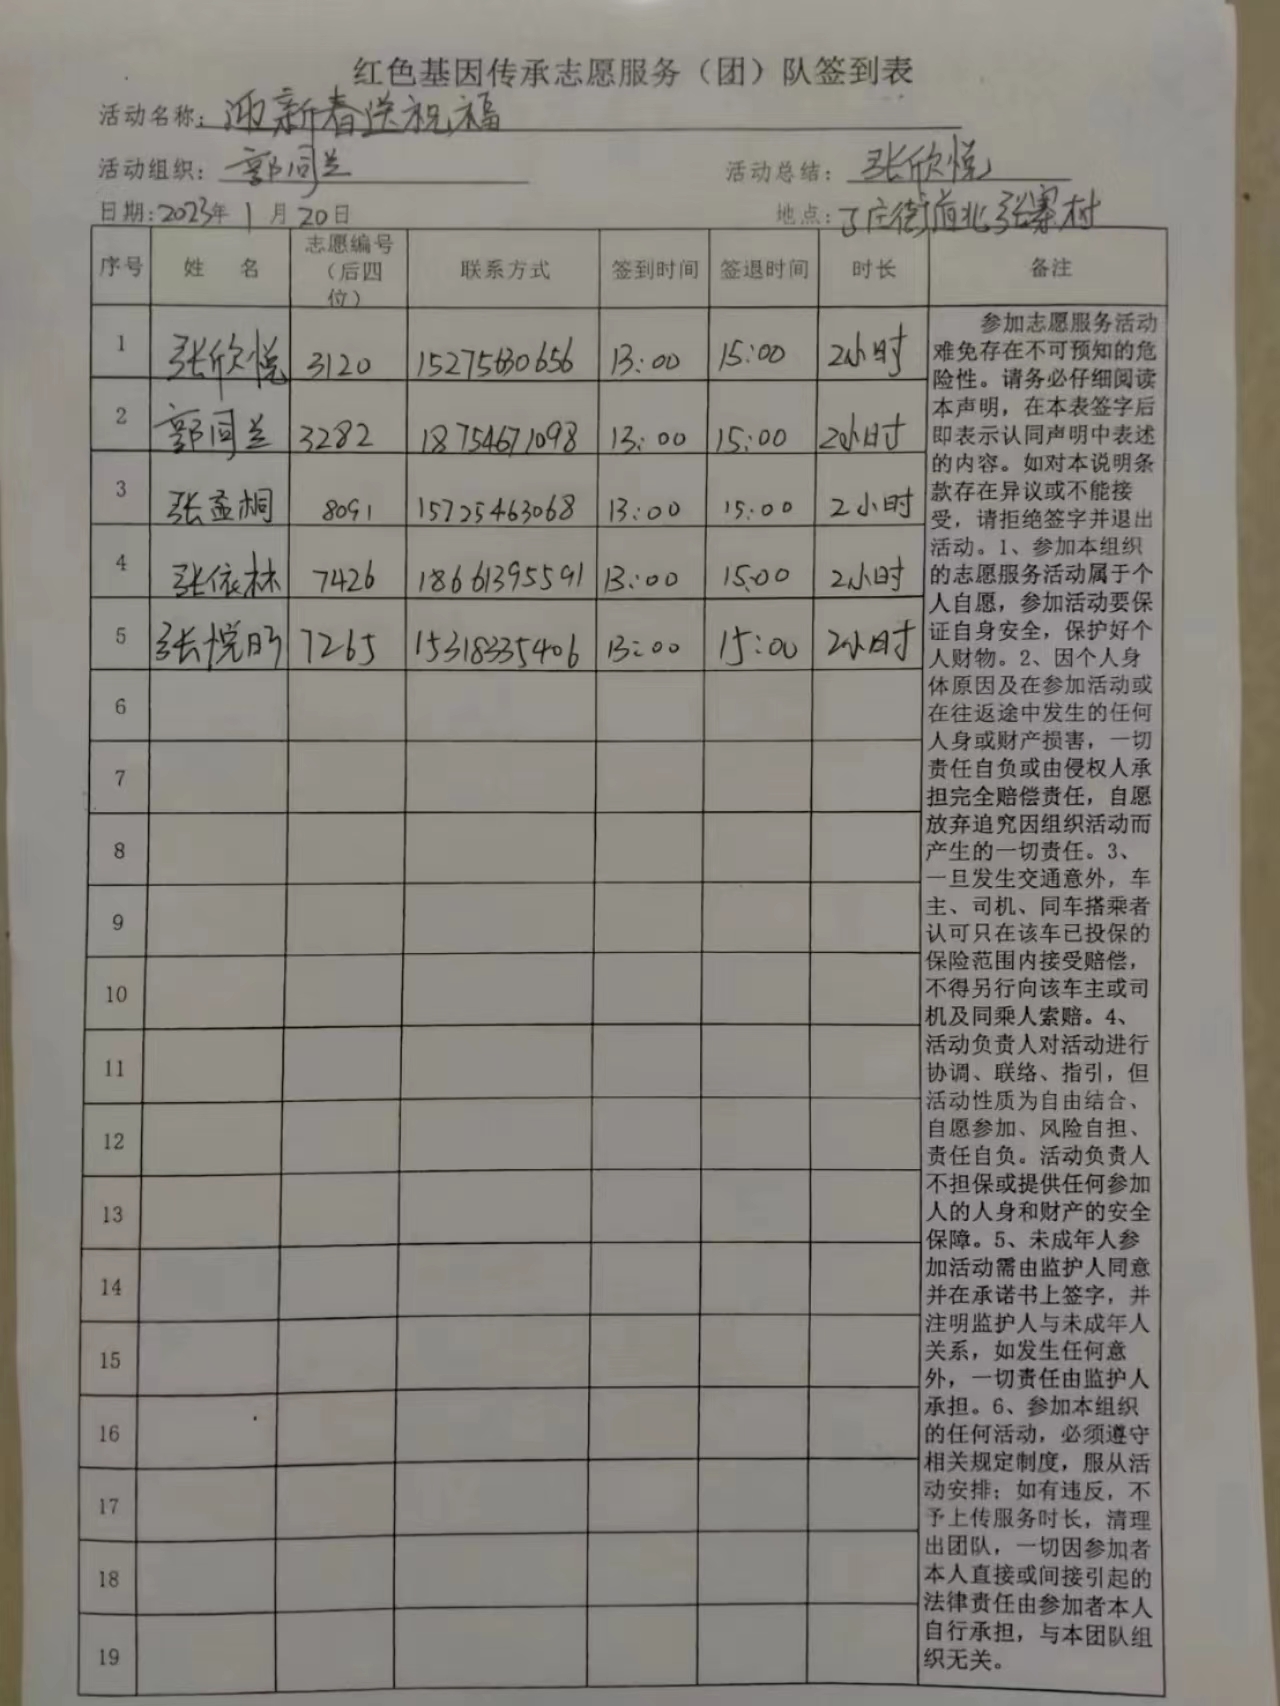 红色基因传承志愿服务（团）队签到表
活动名称：迎新春送祝福
活动组织：郭同兰 活动总结：张欣悦
日期：2023年1月20日 地点：丁庄街道北张寨村
序号 姓 名 志愿编号（后四位） 联系方式 签到时间 签退时间 时长 备注
1 张欣悦 3120 15275630656 13:00 15:00 2小时
2 郭同兰 3282 18754671098 13:00 15:00 2小时
3 张孟桐 8091 15725463068 13:00 15:00 2小时
4 张依林 7426 18661395591 13:00 15:00 2小时
5 张悦 7265 15318335406 13:00 15:00 2小时
6
7
8
9
10
11
12
13
14
15
16
17
18
19
参加志愿服务活动
难免存在不可预知的危
险性。请务必仔细阅读
本声明，在本表签字后
即表示认同声明中表述
的内容。如对本说明条
款存在异议或不能接
受，请拒绝签字并退出
活动。1、参加本组织
的志愿服务活动属于个
人自愿，参加活动要保
证自身安全，保护好个
人财物。2、因个人身
体原因及在参加活动或
在往返途中发生的任何
人身或财产损害，一切
责任自负或由侵权人承
担完全赔偿责任，自愿
放弃追究因组织活动而
产生的一切责任。3、
一旦发生交通意外，车
主、司机、同车搭乘者
认可只在该车已投保的
保险范围内接受赔偿，
不得另行向该车主或司
机及同乘人索赔。4、
活动负责人对活动进行
协调、联络、指引，但
活动性质为自由结合、
自愿参加、风险自担、
责任自负。活动负责人
不担保或提供任何参加
人的人身和财产的安全
保障。5、未成年人参
加活动需由监护人同意
并在承诺书上签字，并
注明监护人与未成年人
关系，如发生任何意
外，一切责任由监护人
承担。6、参加本组织
的任何活动，必须遵守
相关规定制度，服从活
动安排；如有违反，不
予上传服务时长，清理
出团队，一切因参加者
本人直接或间接引起的
法律责任由参加者本人
自行承担，与本团队组
织无关。